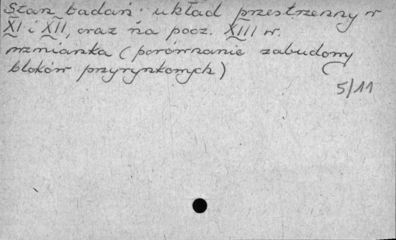 Stan badań. układ przestrzenny w
XI i XII, oraz na pocz. XIII w.
wzmianka (porównanie zabudowy
bloków przyrynkowych)
5/11